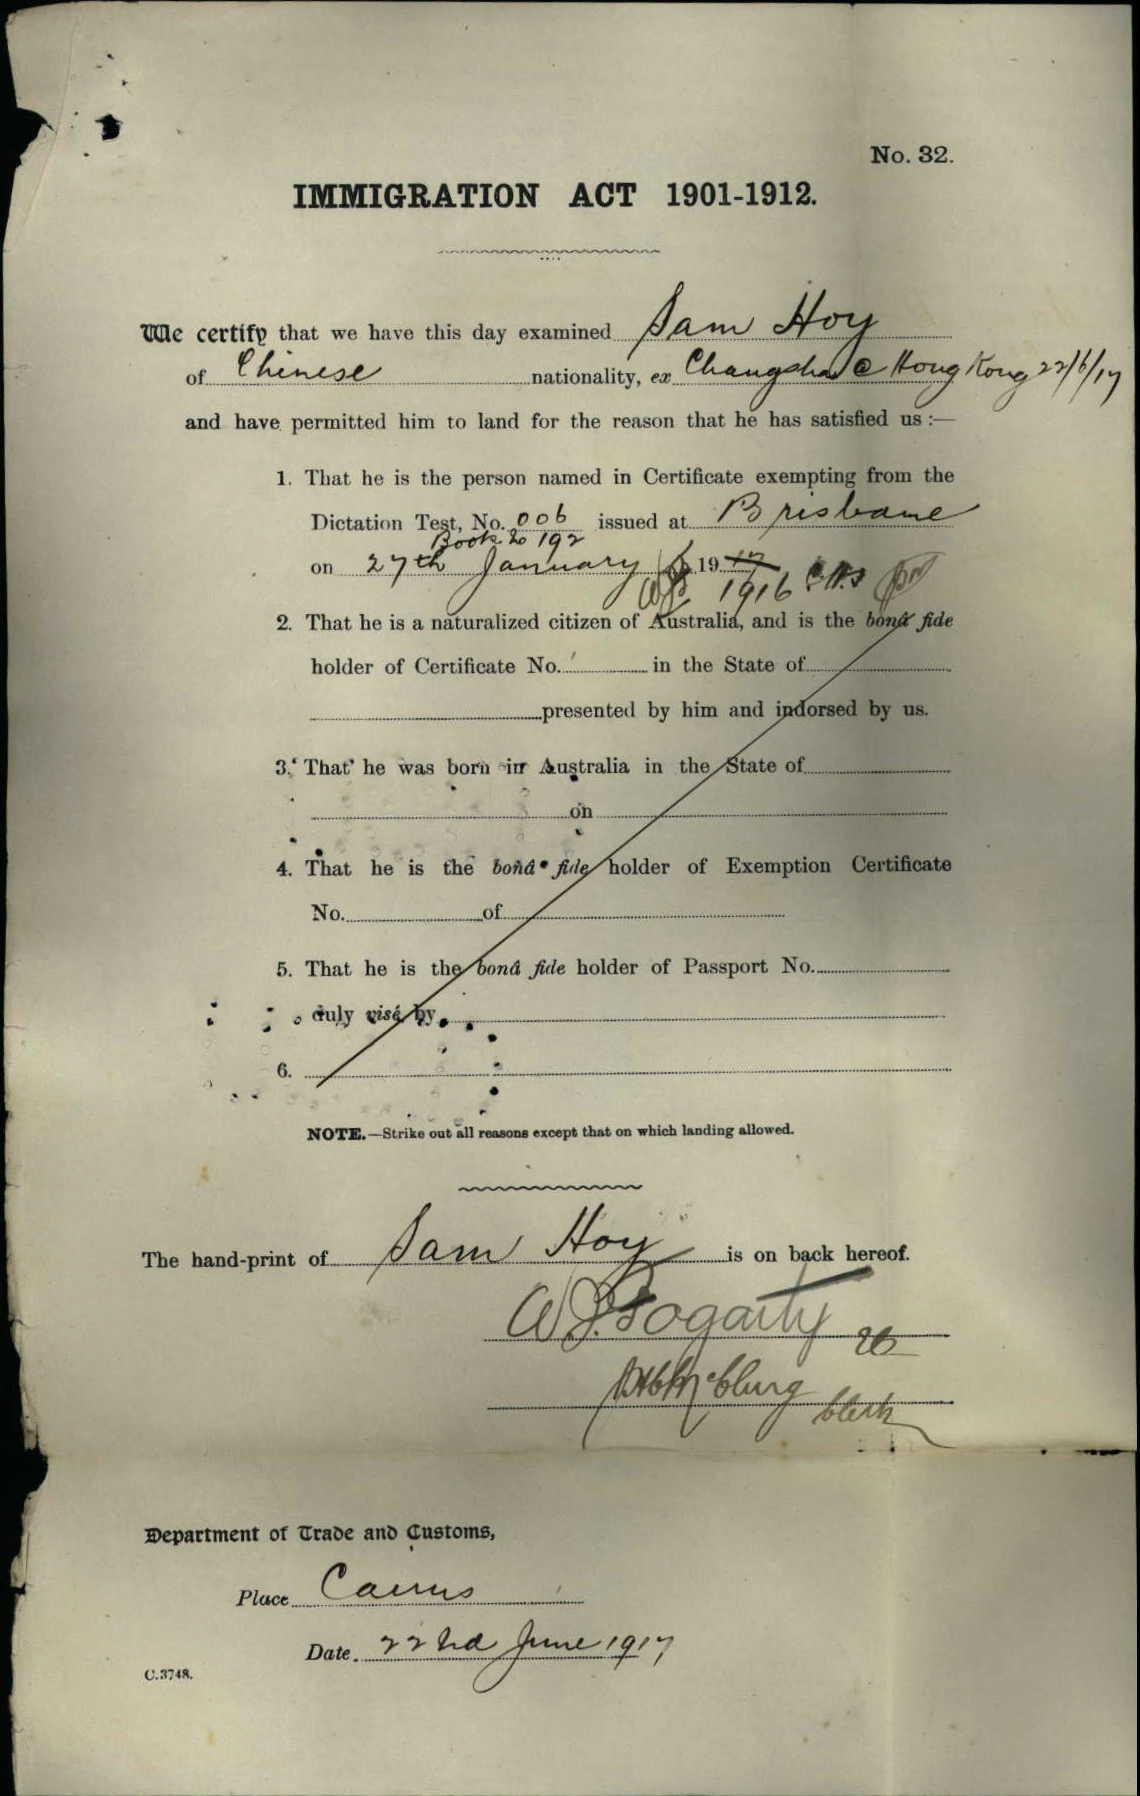 No. 32.
IMMIGRATION ACT 1901-1912.
We certify that we have this day examined Sam Hoy
of Chinese nationality, ex Changsha @ Hong Kong 22/6/17
and have permitted him to land for the reason that he has satisfied us :—
1. That he is the person named in Certificate exempting from the
Dictation Test, No. 006 issued at Brisbane
Book No 192
on 27th January 19 17
WJF 1916
2. That he is a naturalized citizen of Australia, and is the bonâ fide
holder of Certificate No. in the State of
presented by him and indorsed by us.
3. That he was born in Australia in the State of
on
4. That he is the bonâ fide holder of Exemption Certificate
No. of
5. That he is the bonâ fide holder of Passport No.
duly visé by
6.
NOTE.—Strike out all reasons except that on which landing allowed.
The hand-print of Sam Hoy is on back hereof.
W.J. Fogarty
McClurg Clerk
Department of Trade and Customs,
Place Cairns
Date 22nd June 1917
C.3748.